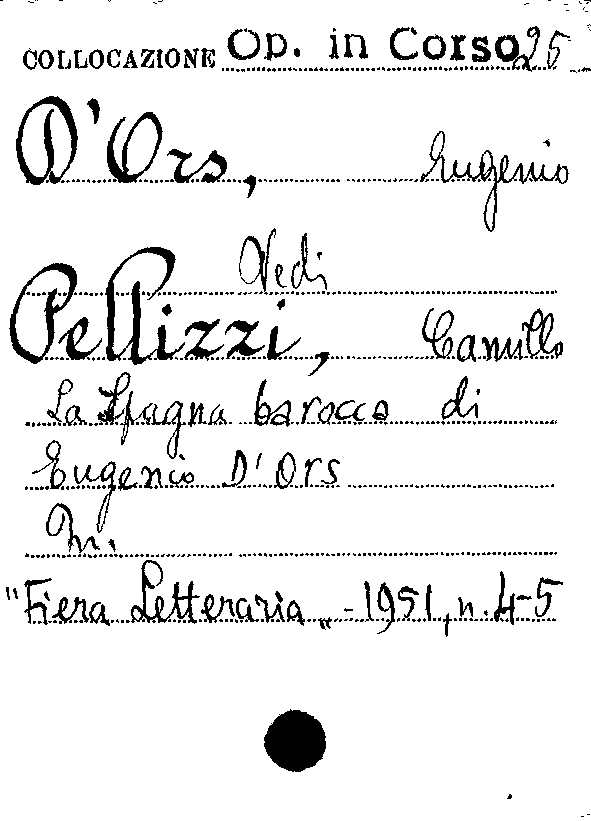 COLLOCAZIONE Op. in Corso 25
D'Ors, Eugenio
Vedi
Pellizzi, Camillo
La Spagna barocca di
Eugenio D'Ors
In.
"Fiera Letteraria„ - 1951, n. 4-5